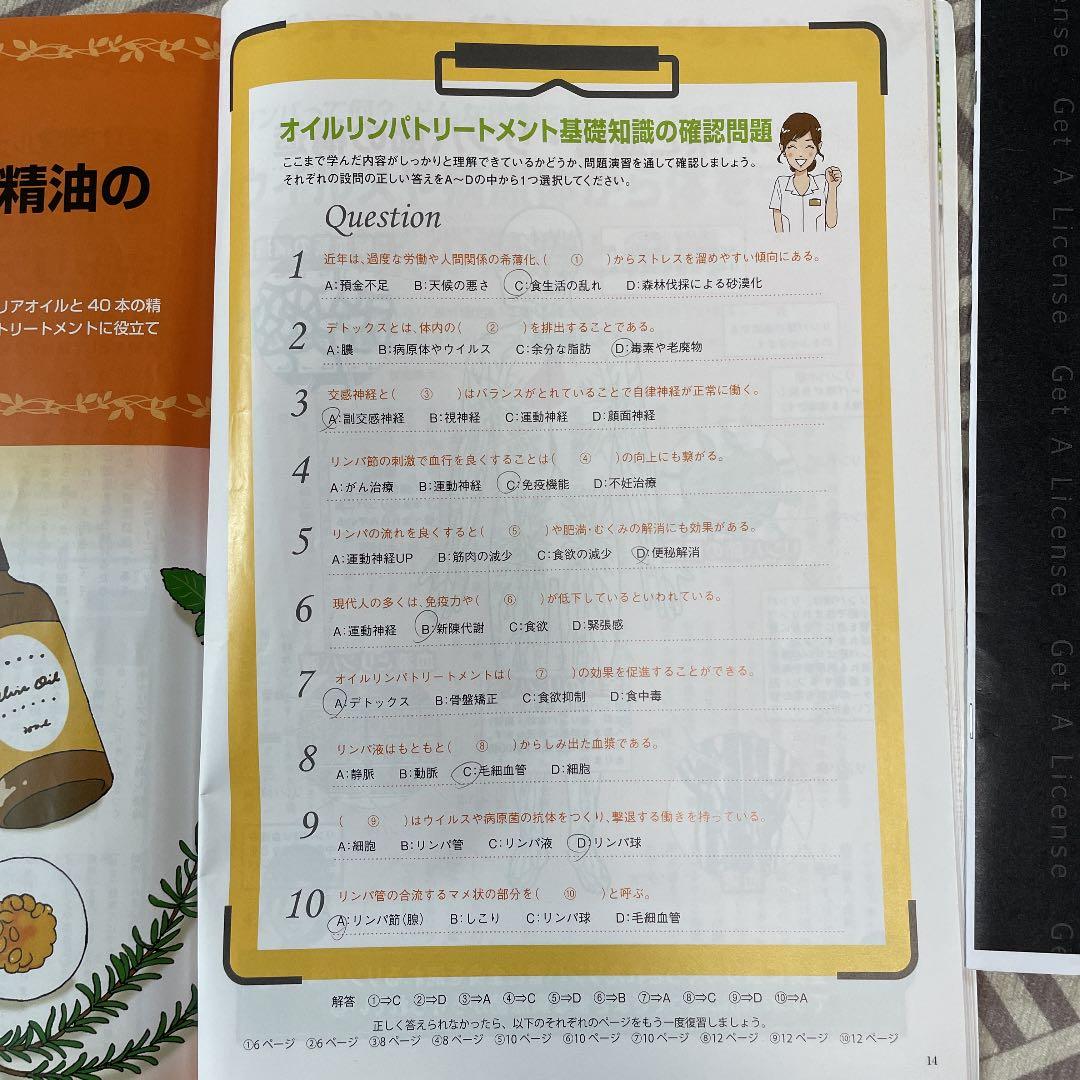 精油の
リアオイルと40本の精
トリートメントに役立て
オイルリンパトリートメント基礎知識の確認問題
ここまで学んだ内容がしっかりと理解できているかどうか、問題演習を通して確認しましょう。
それぞれの設問の正しい答えをA〜Dの中から1つ選択してください。
Question
1 近年は、過度な労働や人間関係の希薄化、( ① )からストレスを溜めやすい傾向にある。
A:預金不足 B:天候の悪さ C:食生活の乱れ D:森林伐採による砂漠化
2 デトックスとは、体内の( ② )を排出することである。
A:膿 B:病原体やウイルス C:余分な脂肪 D:毒素や老廃物
3 交感神経と( ③ )はバランスがとれていることで自律神経が正常に働く。
A:副交感神経 B:視神経 C:運動神経 D:顔面神経
4 リンパ節の刺激で血行を良くすることは( ④ )の向上にも繋がる。
A:がん治療 B:運動神経 C:免疫機能 D:不妊治療
5 リンパの流れを良くすると( ⑤ )や肥満・むくみの解消にも効果がある。
A:運動神経UP B:筋肉の減少 C:食欲の減少 D:便秘解消
6 現代人の多くは、免疫力や( ⑥ )が低下しているといわれている。
A:運動神経 B:新陳代謝 C:食欲 D:緊張感
7 オイルリンパトリートメントは( ⑦ )の効果を促進することができる。
A:デトックス B:骨盤矯正 C:食欲抑制 D:食中毒
8 リンパ液はもともと( ⑧ )からしみ出た血漿である。
A:静脈 B:動脈 C:毛細血管 D:細胞
9 ( ⑨ )はウイルスや病原菌の抗体をつくり、撃退する働きを持っている。
A:細胞 B:リンパ管 C:リンパ液 D:リンパ球
10 リンパ管の合流するマメ状の部分を( ⑩ )と呼ぶ。
A:リンパ節(腺) B:しこり C:リンパ球 D:毛細血管
解答 ①⇒C ②⇒D ③⇒A ④⇒C ⑤⇒D ⑥⇒B ⑦⇒A ⑧⇒C ⑨⇒D ⑩⇒A
正しく答えられなかったら、以下のそれぞれのページをもう一度復習しましょう。
①6ページ ②6ページ ③8ページ ④8ページ ⑤10ページ ⑥10ページ ⑦10ページ ⑧12ページ ⑨12ページ ⑩12ページ
14
ense Get A License Get A License Get A License Ge